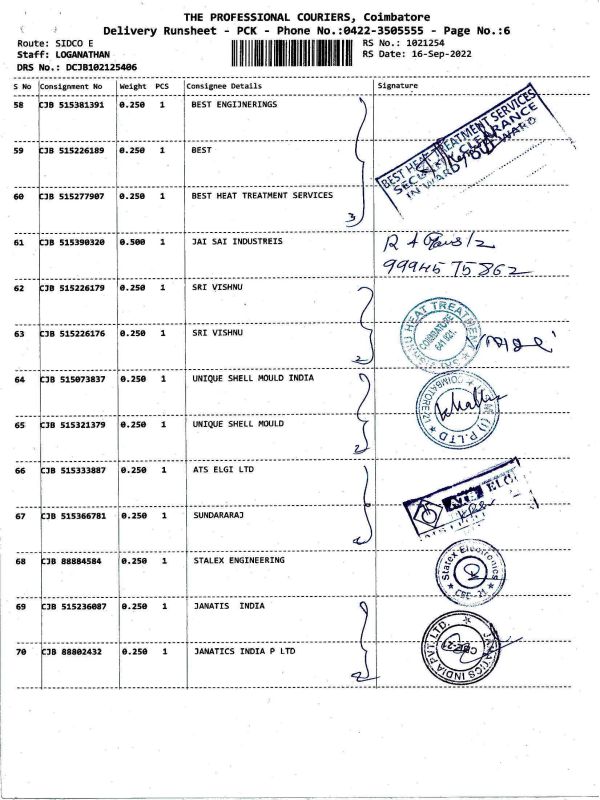 THE PROFESSIONAL COURIERS, Coimbatore
Delivery Runsheet - PCK - Phone No.:0422-3505555 - Page No.:6
Route: SIDCO E
RS No.: 1021254
Staff: LOGANATHAN
RS Date: 16-Sep-2022
DRS No.: DCJB102125406
S No Consignment No Weight PCS Consignee Details Signature
58 CJB 515381391 0.250 1 BEST ENGIJNERINGS
BEST HEAT TREATMENT SERVICES
SECURITY CLEARANCE
IN WARD / OUT WARD
59 CJB 515226189 0.250 1 BEST
60 CJB 515277907 0.250 1 BEST HEAT TREATMENT SERVICES
3
61 CJB 515390320 0.500 1 JAI SAI INDUSTREIS
99945 75862
62 CJB 515226179 0.250 1 SRI VISHNU
SRI VISHNU HEAT TREATMENT
COIMBATORE
641 021
63 CJB 515226176 0.250 1 SRI VISHNU
2
64 CJB 515073837 0.250 1 UNIQUE SHELL MOULD INDIA
COIMBATORE-21
(I) P.LTD
65 CJB 515321379 0.250 1 UNIQUE SHELL MOULD
2
66 CJB 515333887 0.250 1 ATS ELGI LTD
ATS ELGI
67 CJB 515366781 0.250 1 SUNDARARAJ
68 CJB 88884584 0.250 1 STALEX ENGINEERING
Statex Electronics
CBE-21
69 CJB 515236087 0.250 1 JANATIS INDIA
70 CJB 88802432 0.250 1 JANATICS INDIA P LTD
JANATICS INDIA PVT. LTD.
CBE-21
2